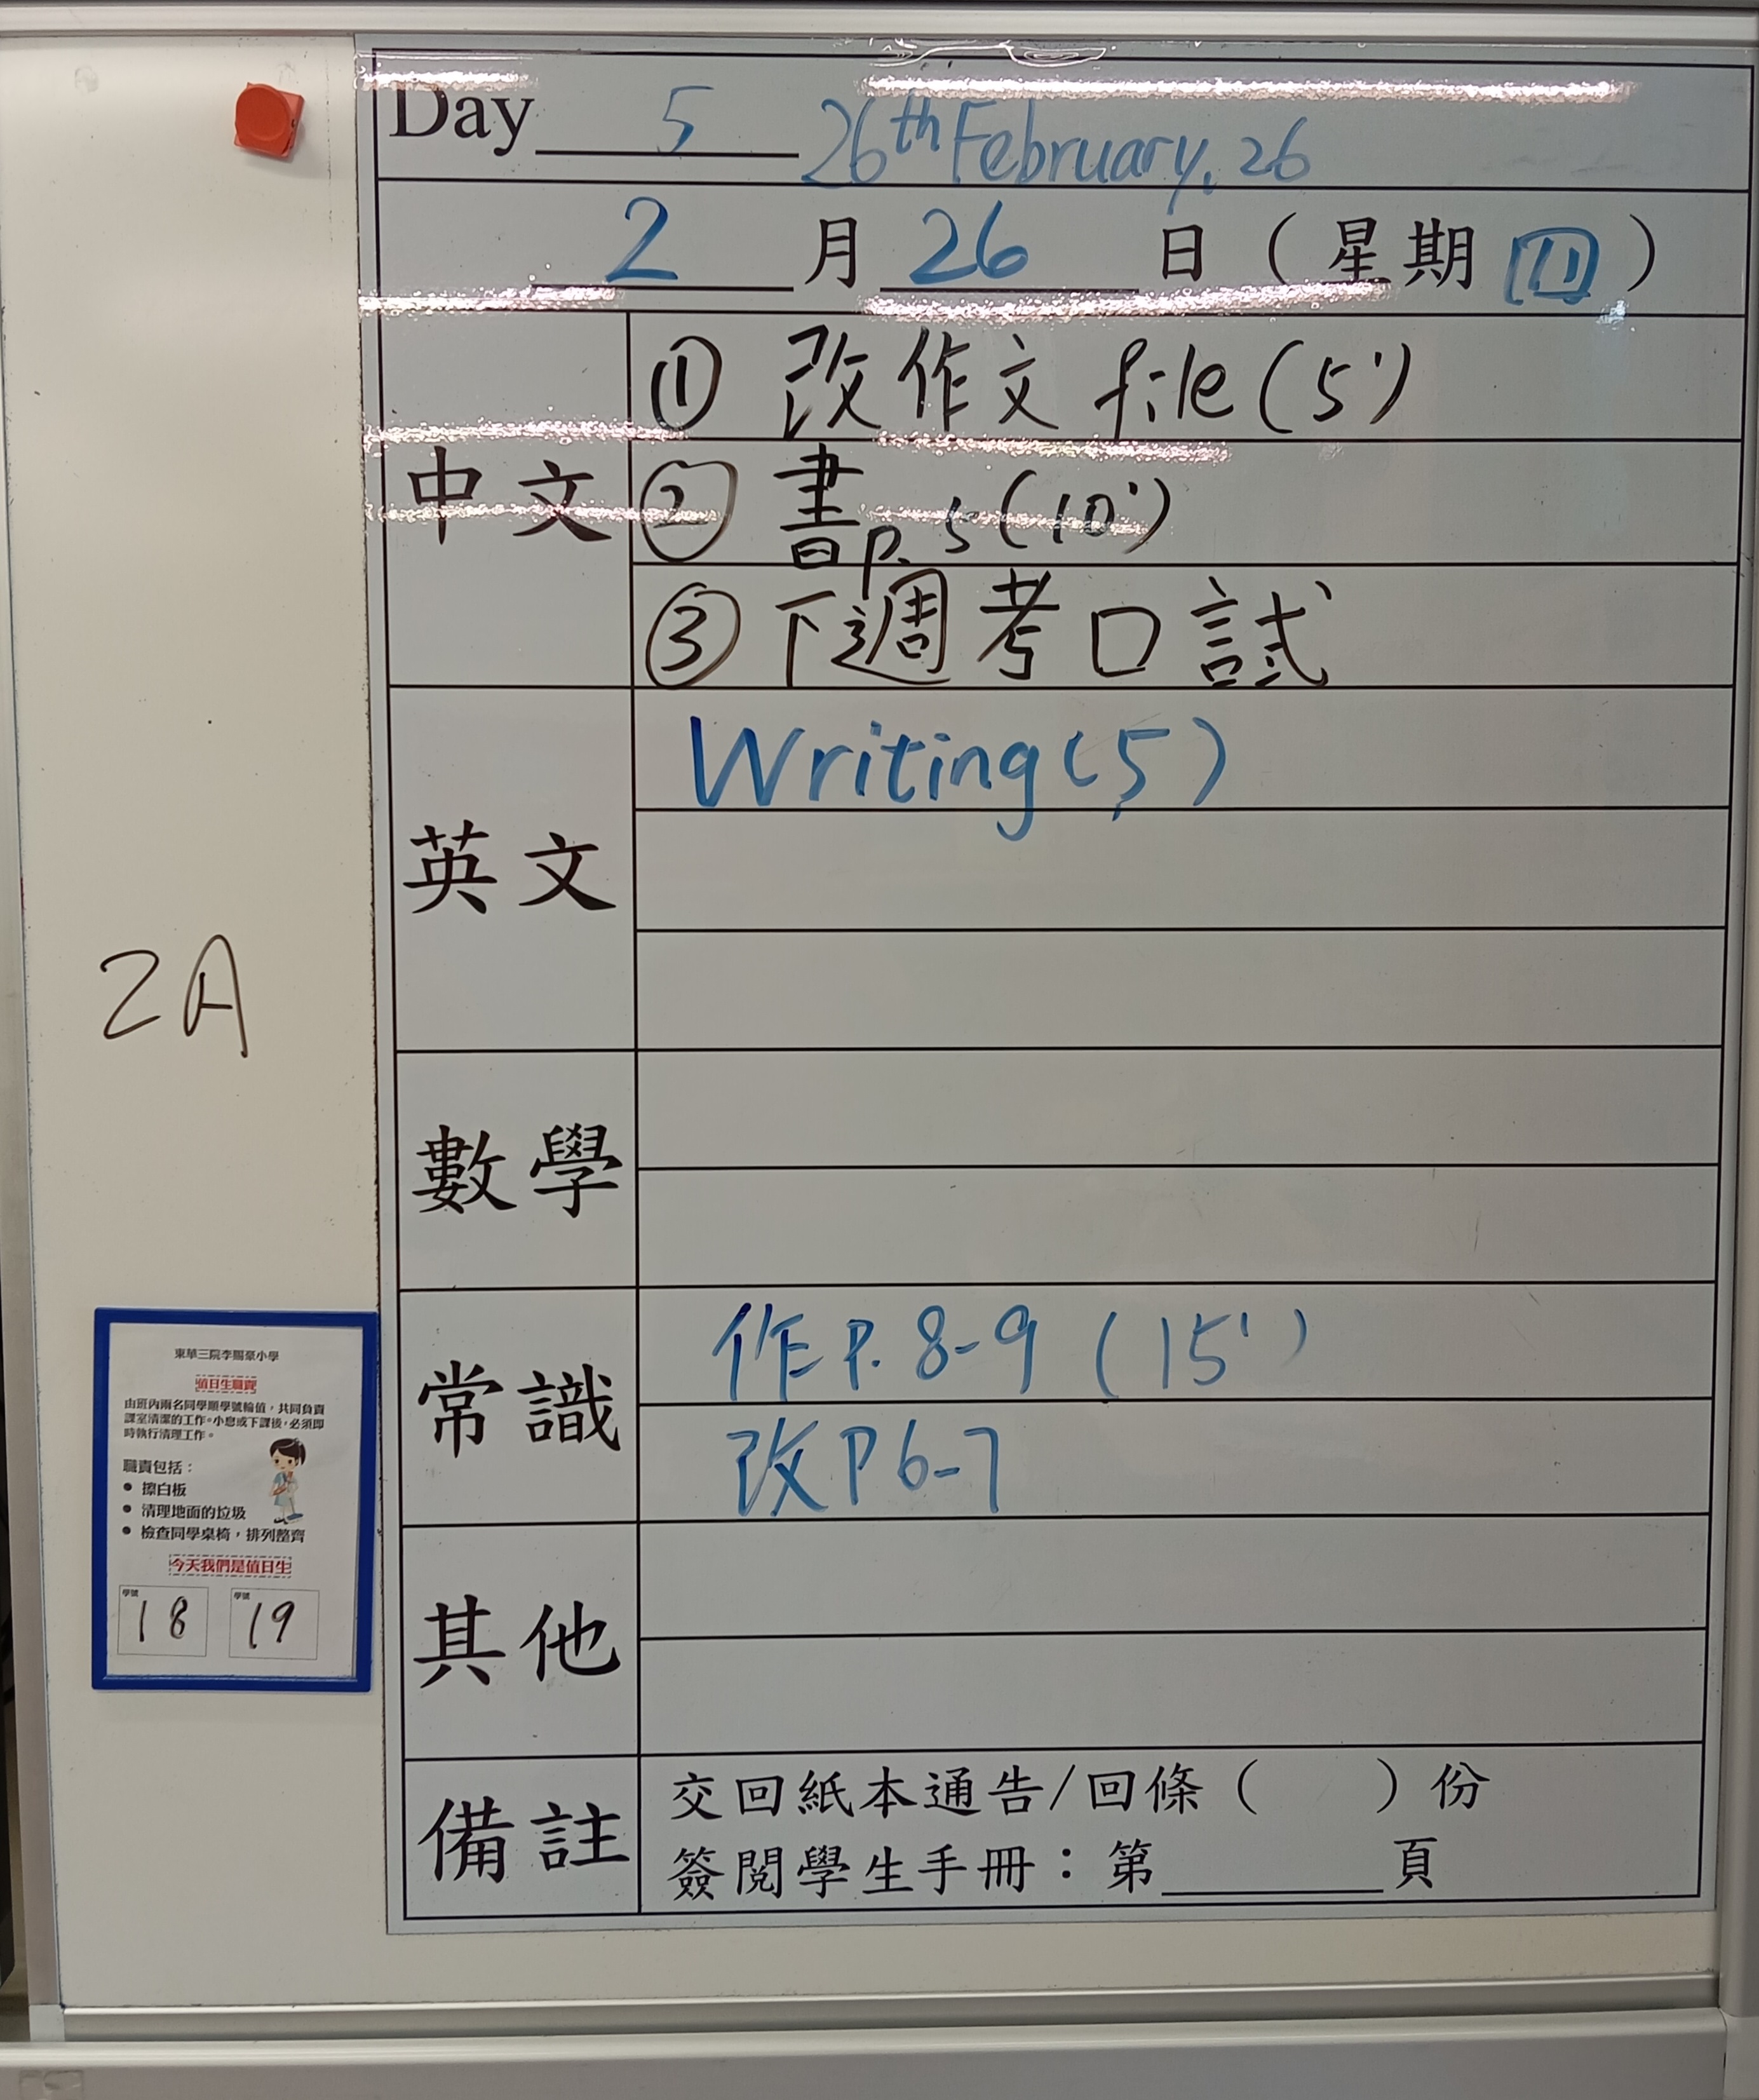 Day 5 26th February, 26
2 月 26 日 ( 星期 四 )
中文
① 改作文 file (5')
② 書 p. 5 (10')
③ 下週考口試
英文
Writing (5')
數學
常識
作 P. 8-9 (15')
改 P 6-7
其他
備註
交回紙本通告/回條 ( ) 份
簽閱學生手冊：第______頁
2A
東華三院李賜豪小學
值日生職責
由班內兩名同學順學號輪值，共同負責
課室清潔的工作。小息或下課後，必須即
時執行清理工作。
職責包括：
• 擦白板
• 清理地面的垃圾
• 檢查同學桌椅，排列整齊
今天我們是值日生
學號 學號
18 19